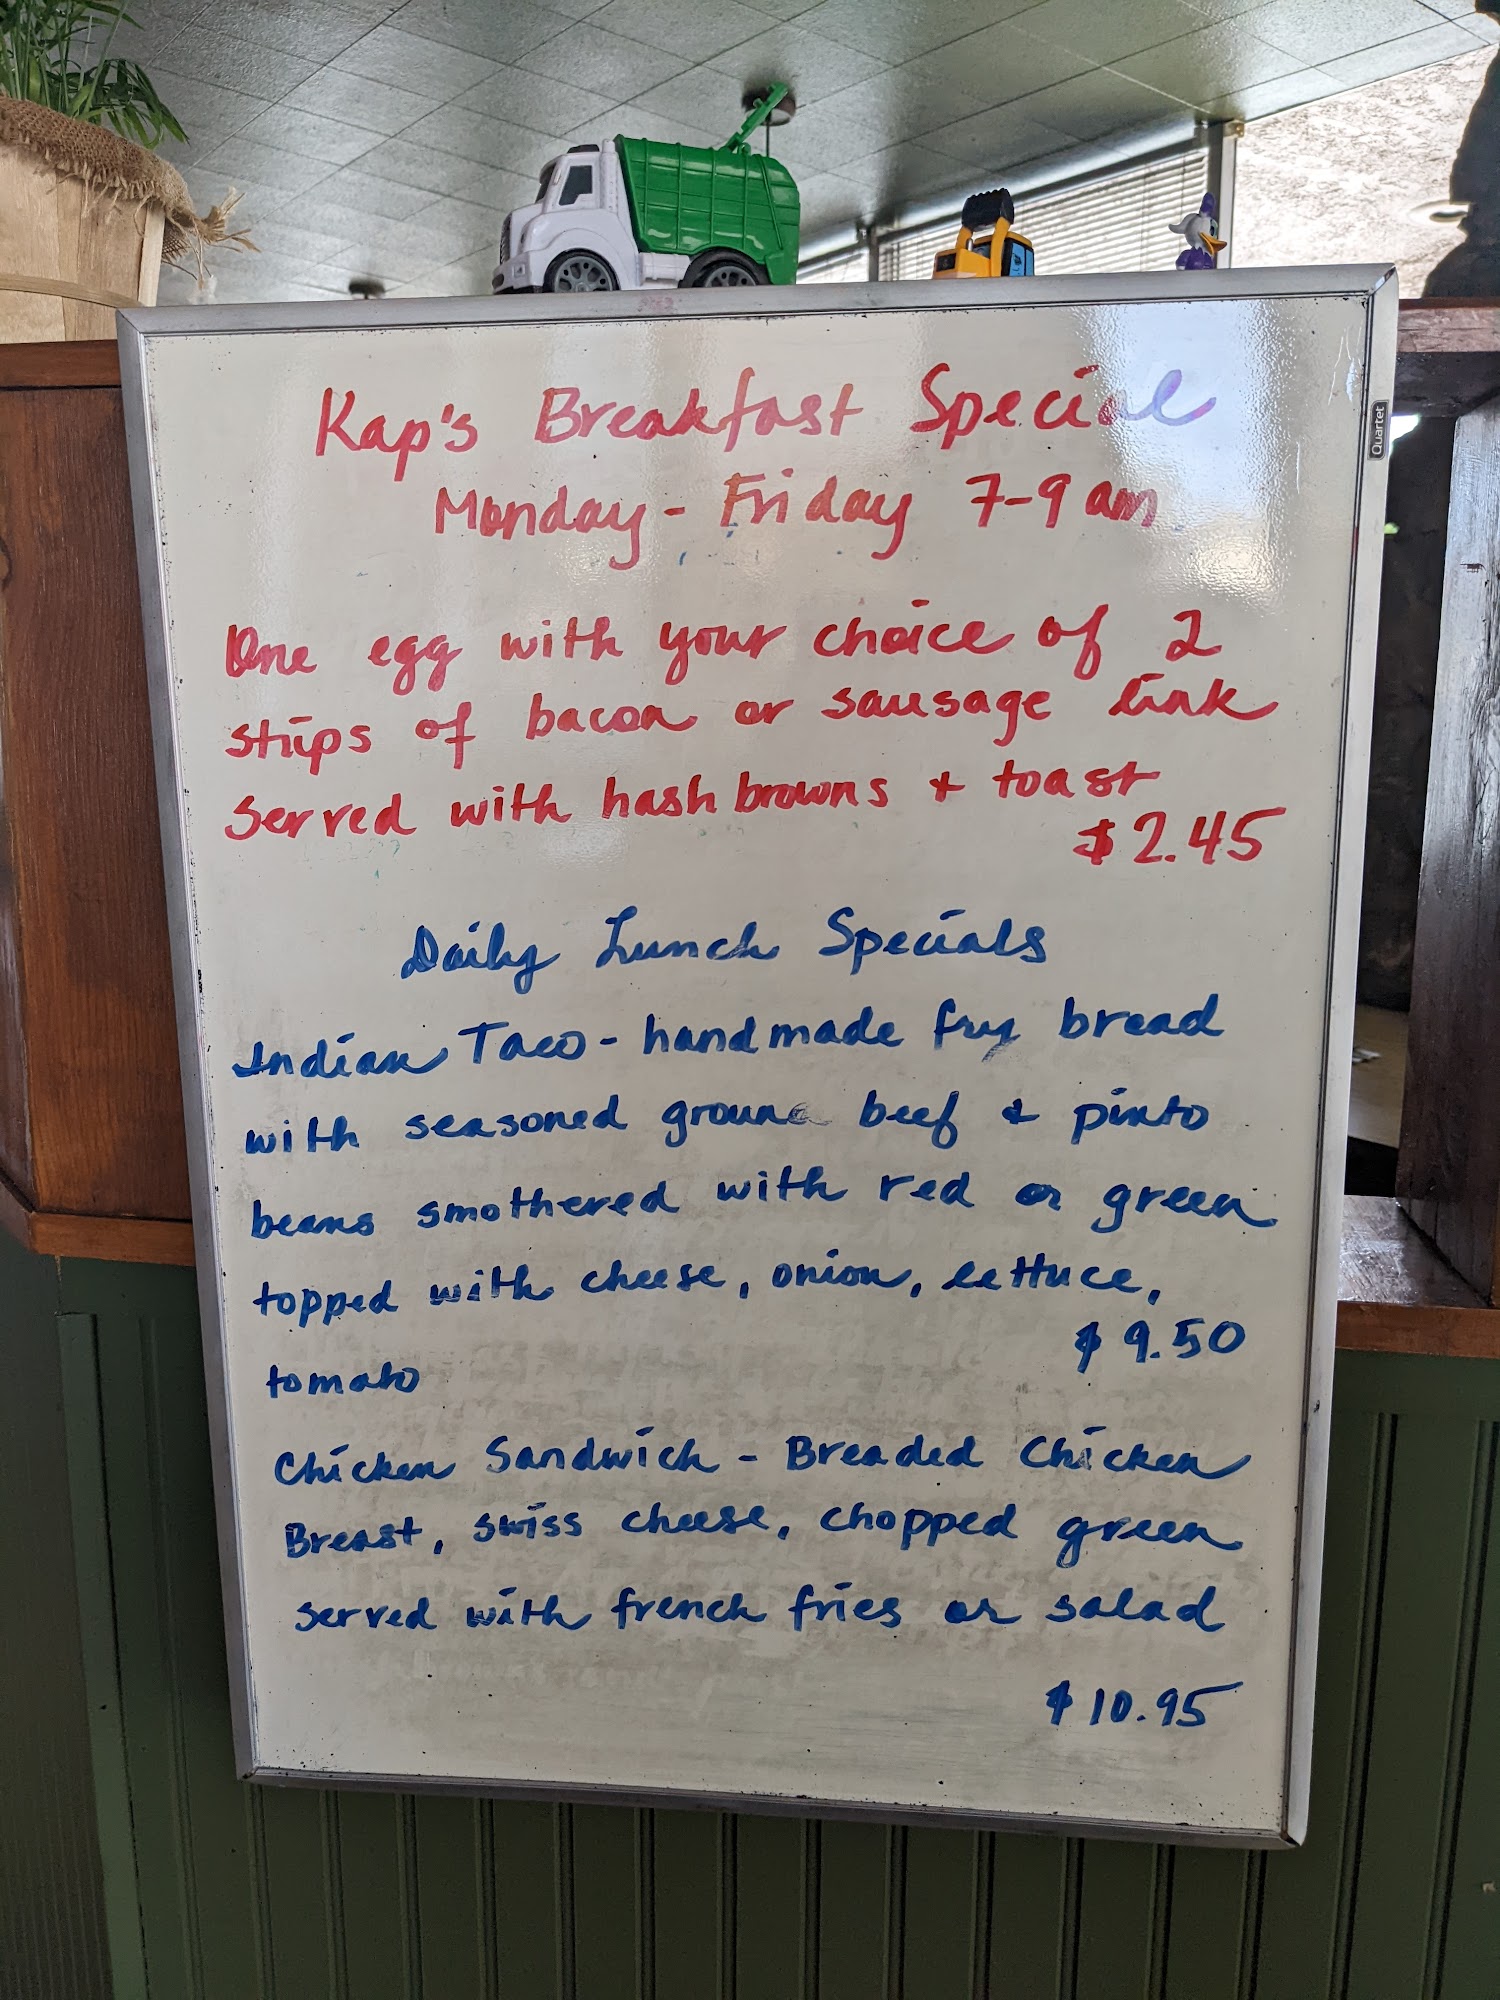 Kap's Breakfast Special
Monday - Friday 7-9 am
One egg with your choice of 2
strips of bacon or sausage link
served with hash browns & toast
$2.45
Daily Lunch Specials
Indian Taco - handmade fry bread
with seasoned ground beef & pinto
beans smothered with red or green
topped with cheese, onion, lettuce,
$9.50
tomato
Chicken Sandwich - Breaded Chicken
Breast, swiss cheese, chopped green
served with french fries or salad
$10.95
Quartet